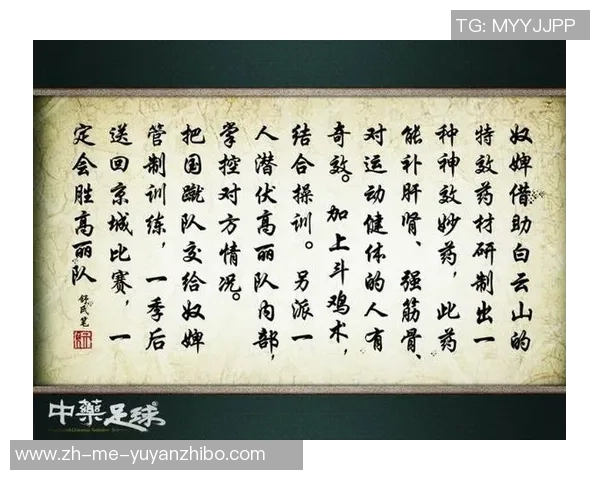 TG: MYYJJPP
奴婢借助白云山的
特效药材研制出一
种神效妙药，此药
能补肝肾、强筋骨、
对运动健体的人有
奇效。加上斗鸡术，
结合操训。另派一
人潜伏高丽队内部，
掌控对方情况。
把国蹴队交给奴婢
管制训练，一季后
送回京城比赛，一
定会胜高丽队
舒氏笔
中藥足球
www.zh-me-yuyanzhibo.com